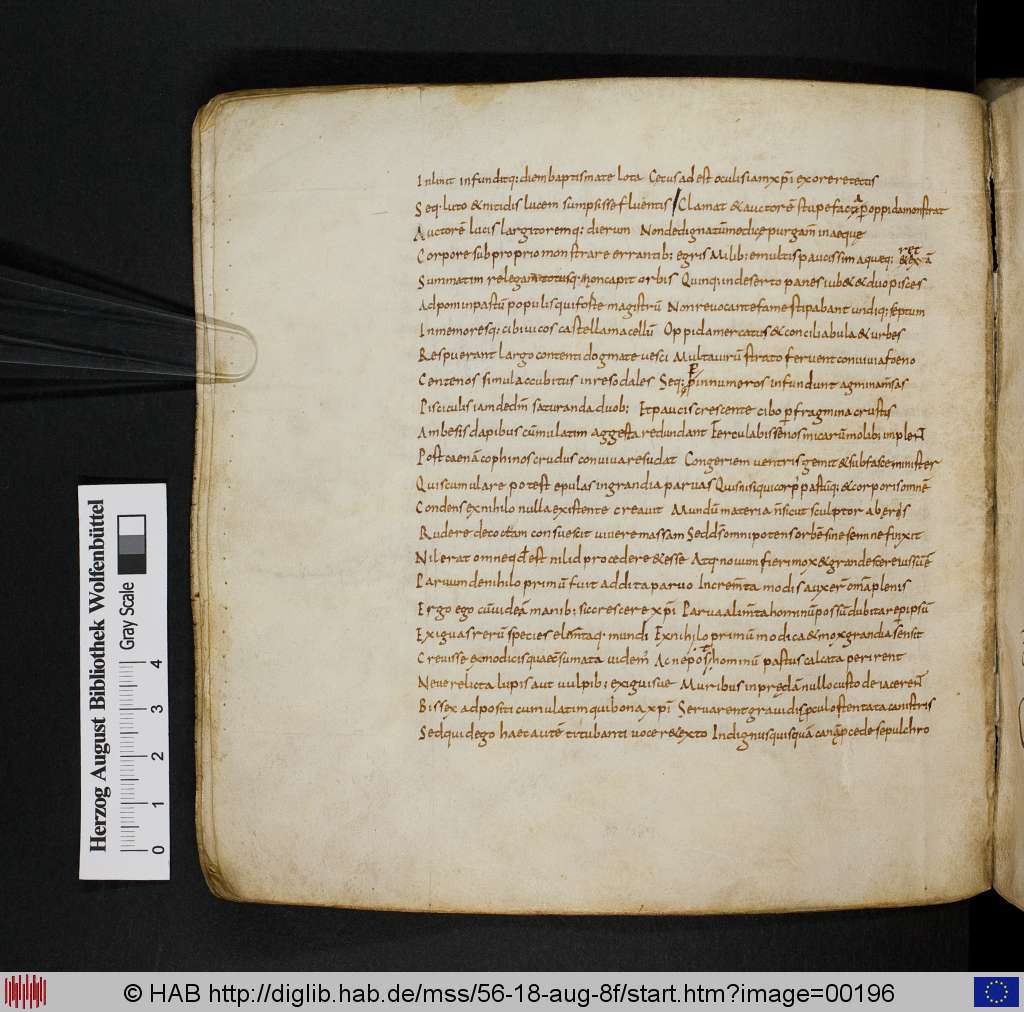 Inlinit infunditq; diem baptismate lota Cetus adest oculis iam xp̄i exorere tectis
Seq; luto & nitidis lucem sumpsisse fluentis / Clamat & auctorē stupefacta p̄ oppida monstrat
Auctorē lucis largitoremq; dierum Non dedignatū medice purgam̄ in aeque
Corpore sub proprio monstrare errantib; egris Milib; e multis paucissima queq;
Summatim relegam totus q; non capit orbis Quinq; in deserto panes iub& & duo pisces
Adponi in pastū populis qui forte magistrū Non reuocante fame stipabant undiq; septum
Inmemoresq; cibi uicos castella macellū Oppida mercatus & conciliabula & urbes
Respuerant largo contenti dogmate uesci Multa uirū strato feruent conuiuia foeno
Centenos simul accubitus in re sodales Seq; p̄ innumeros infundunt agmina m̄sas
Pisciculis iam dedm̄ saturanda duob; Et paucis crescente cibo p̄ fragmina crustis
Ambesis dapibus cūmulatim aggesta redundant Fercula bissenos micarū moli b; impler̄
Post caenā cophinos crudus conuiua resudat Congeriem uentris gemit & sub fasce minister
Quis cumulare potest epulas in grandia paruas Quis nisi qui corp̄ pastūq; & corporis omnē
Condens ex nihilo nulla existente creauit Mundū materia n̄ sicut sculptor ab eris
Rudere decoctam consuescit uiuere massam Sed ds̄ omnipotens orbē sine semne finxit
Nil erat omne qd̄ est nil id procedere & esse Atq; nouum fieri mox & grandescere iussum ē
Paruum de nihilo primū fuit addita paruo Increm̄ta modis auxer̄ om̄a plenis
Ergo ego cū uideā manib; sic crescere xp̄i Parua alim̄ta hominū possū dubitare p̄ ipsū
Exiguas rerū species elem̄taq; mundi Ex nihilo primū modica & mox grandia sensit
Creuisse ex modicis quae c̄sumata uidem̄ Ac ne post hominū pastus calcata perirent
Neue relicta lupis aut uulpib; exiguisue Muribus in predā nullo custode iacerent
Bissex adpositi cumulatim qui bona xp̄i Seruarent grauidis p̄cul ostentata canistris
Sed quid ego haec autē titubanti uoce r&exto Indignus quisquā canā p̄cede sepulchro
Herzog August Bibliothek Wolfenbüttel
Gray Scale
0 1 2 3 4
© HAB http://diglib.hab.de/mss/56-18-aug-8f/start.htm?image=00196